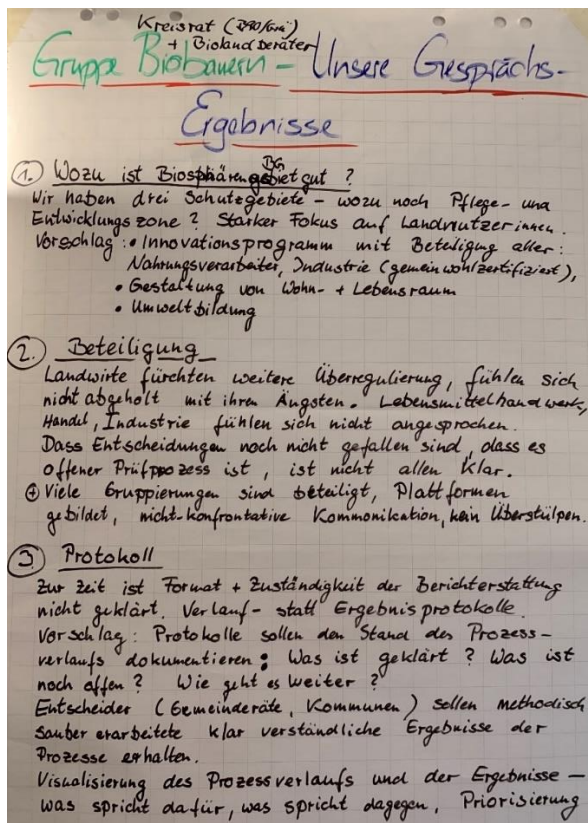 Kreisrat (
+ Bioland berater
Gruppe Biobauern - Unsere Gesprächs-
Ergebnisse
1. Wozu ist Biosphärengebiet gut ?
BG
Wir haben drei Schutzgebiete - wozu noch Pflege- und
Entwicklungszone ? Starker Fokus auf Landnutzerinnen.
Vorschlag : • Innovationsprogramm mit Beteiligung aller :
Nahrungsverarbeiter, Industrie (gemeinwohlzertifiziert),
• Gestaltung von Wohn- + Lebensraum
• Umweltbildung
2. Beteiligung
Landwirte fürchten weitere Überregulierung, fühlen sich
nicht abgeholt mit ihren Ängsten. Lebensmittelhandwerk,
Handel, Industrie fühlen sich nicht angesprochen.
Dass Entscheidungen noch nicht gefallen sind, dass es
offener Prüfprozess ist, ist nicht allen klar.
⊕ Viele Gruppierungen sind beteiligt, Plattformen
gebildet, nicht-konfrontative Kommonikation, kein Überstülpen.
3. Protokoll
Zur Zeit ist Format + Zuständigkeit der Berichterstattung
nicht geklärt. Verlauf- statt Ergebnisprotokolle.
Vorschlag : Protokolle sollen den Stand des Prozess-
verlaufs dokumentieren : Was ist geklärt ? Was ist
noch offen ? Wie geht es weiter ?
Entscheider (Gemeinderäte, Kommunen) sollen methodisch
sauber erarbeitete klar verständliche Ergebnisse der
Prozesse erhalten.
Visualisierung des Prozessverlaufs und der Ergebnisse -
was spricht dafür, was spricht dagegen, Priorisierung